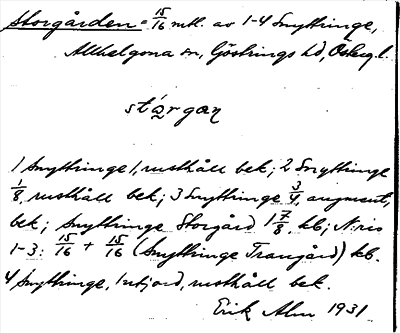 Storgården = 15/16 mtl. av 1-4 Snyttringe,
Allhelgona sn, Göstrings hd, Östergl.
stórgan
1 Snyttringe 1, rusthåll bek; 2 Snyttringe
1/8, rusthåll bek; 3 Snyttringe 3/4, augment,
bek; Snyttringe Storgård 1 7/8, kb; N:ris
1-3: 15/16 + 15/16 (Snyttringe Trangård) kb.
4 Snyttringe, 1 utjord, rusthåll bek.
Erik Alm 1931